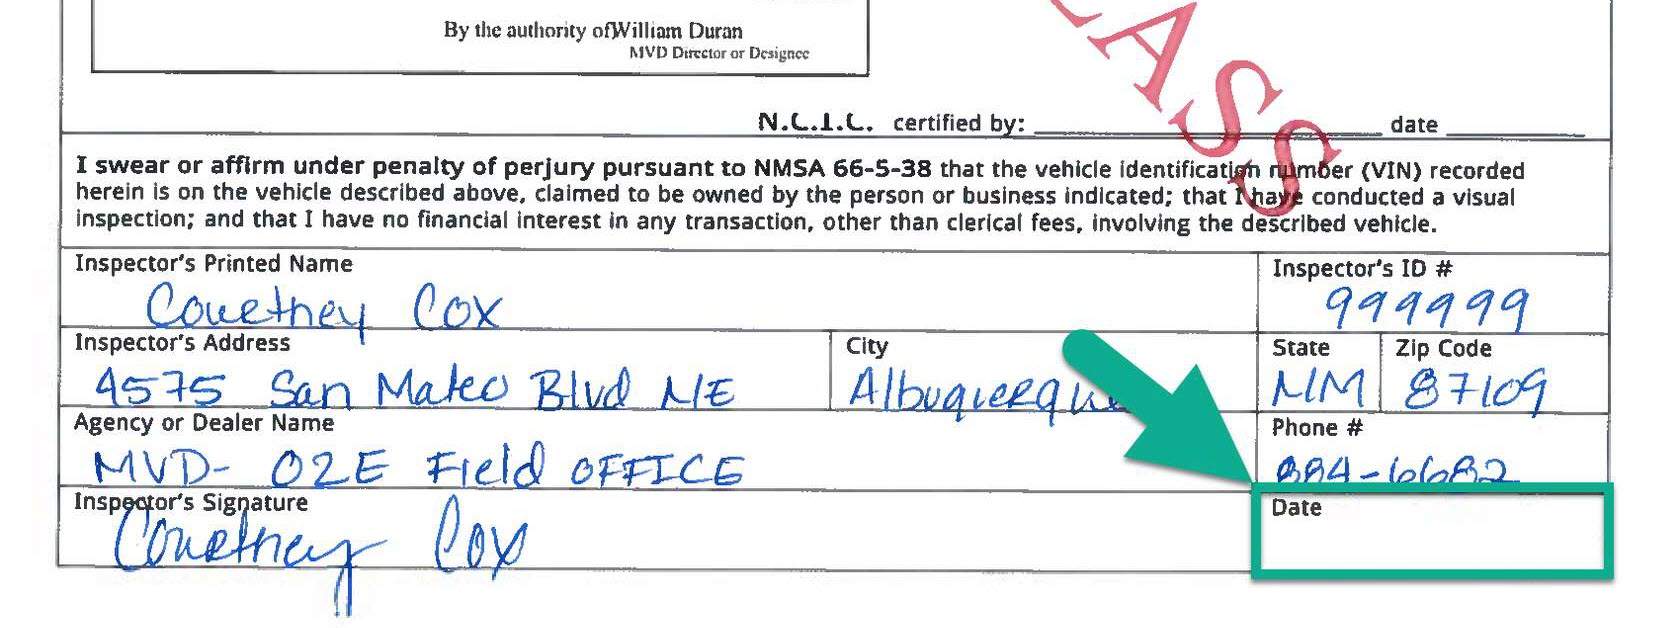 By the authority ofWilliam Duran
MVD Director or Designee
LASS
N.C.I.C. certified by: date
I swear or affirm under penalty of perjury pursuant to NMSA 66-5-38 that the vehicle identification number (VIN) recorded
herein is on the vehicle described above, claimed to be owned by the person or business indicated; that I have conducted a visual
inspection; and that I have no financial interest in any transaction, other than clerical fees, involving the described vehicle.
Inspector's Printed Name Inspector's ID #
Courtney Cox 999999
Inspector's Address City State Zip Code
4575 San Mateo Blvd NE Albuquerque NM 87109
Agency or Dealer Name Phone #
MVD- 02E Field OFFICE 884-6682
Inspector's Signature Date
Courtney Cox